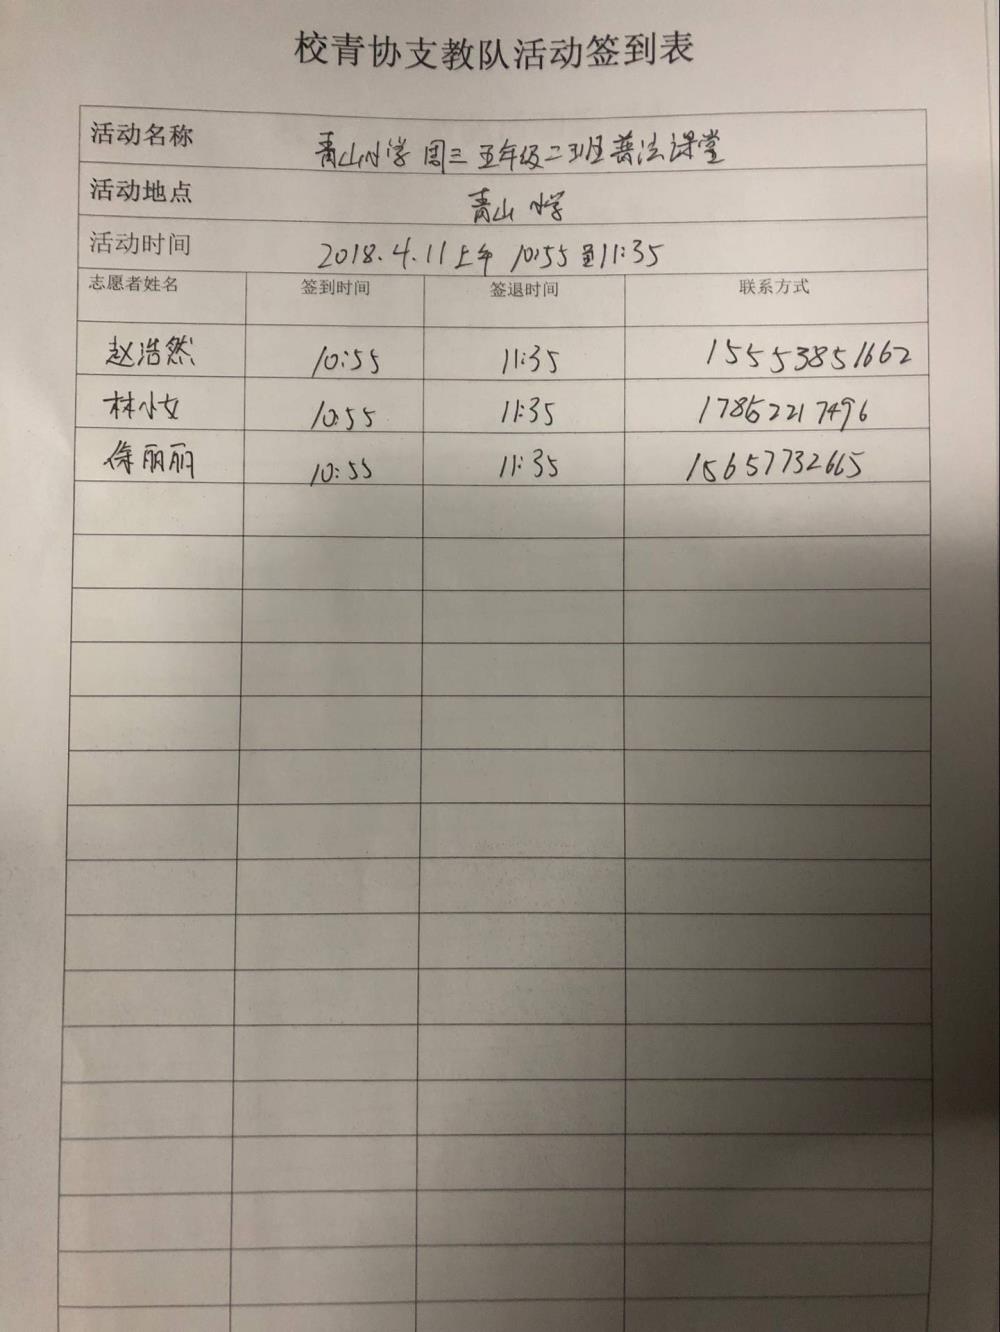 校青协支教队活动签到表
活动名称 青山小学 周三 五年级二班普法课堂
活动地点 青山 小学
活动时间 2018.4.11上午 10:55至11:35
志愿者姓名 签到时间 签退时间 联系方式
赵浩然 10:55 11:35 15553851662
林小女 10:55 11:35 17852217496
徐丽丽 10:55 11:35 15657732665